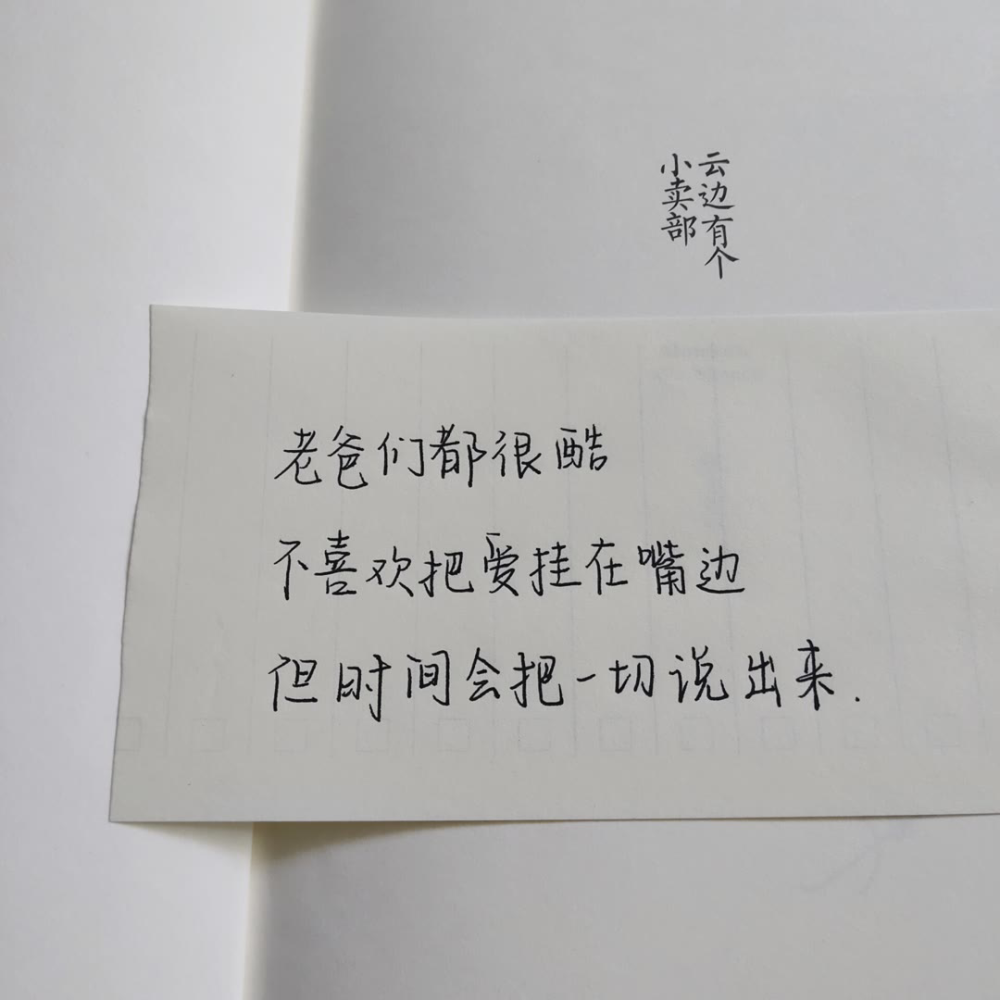 云边有个
小卖部
老爸们都很酷
不喜欢把爱挂在嘴边
但时间会把一切说出来.